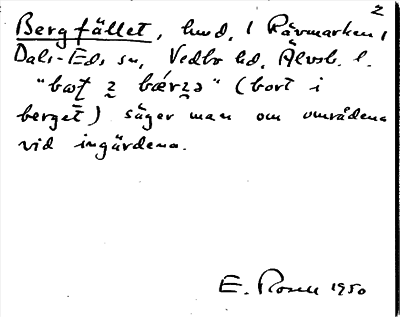 2
Bergfället, hmd. 1 Rävmarken,
Dals-Eds sn, Vedbo hd, Älvsb. l.
"bɷt̠ i̠ bǽrʓə" (bort i
berget) säger man om områdena
vid ingärdena.
E. Rosell 1950